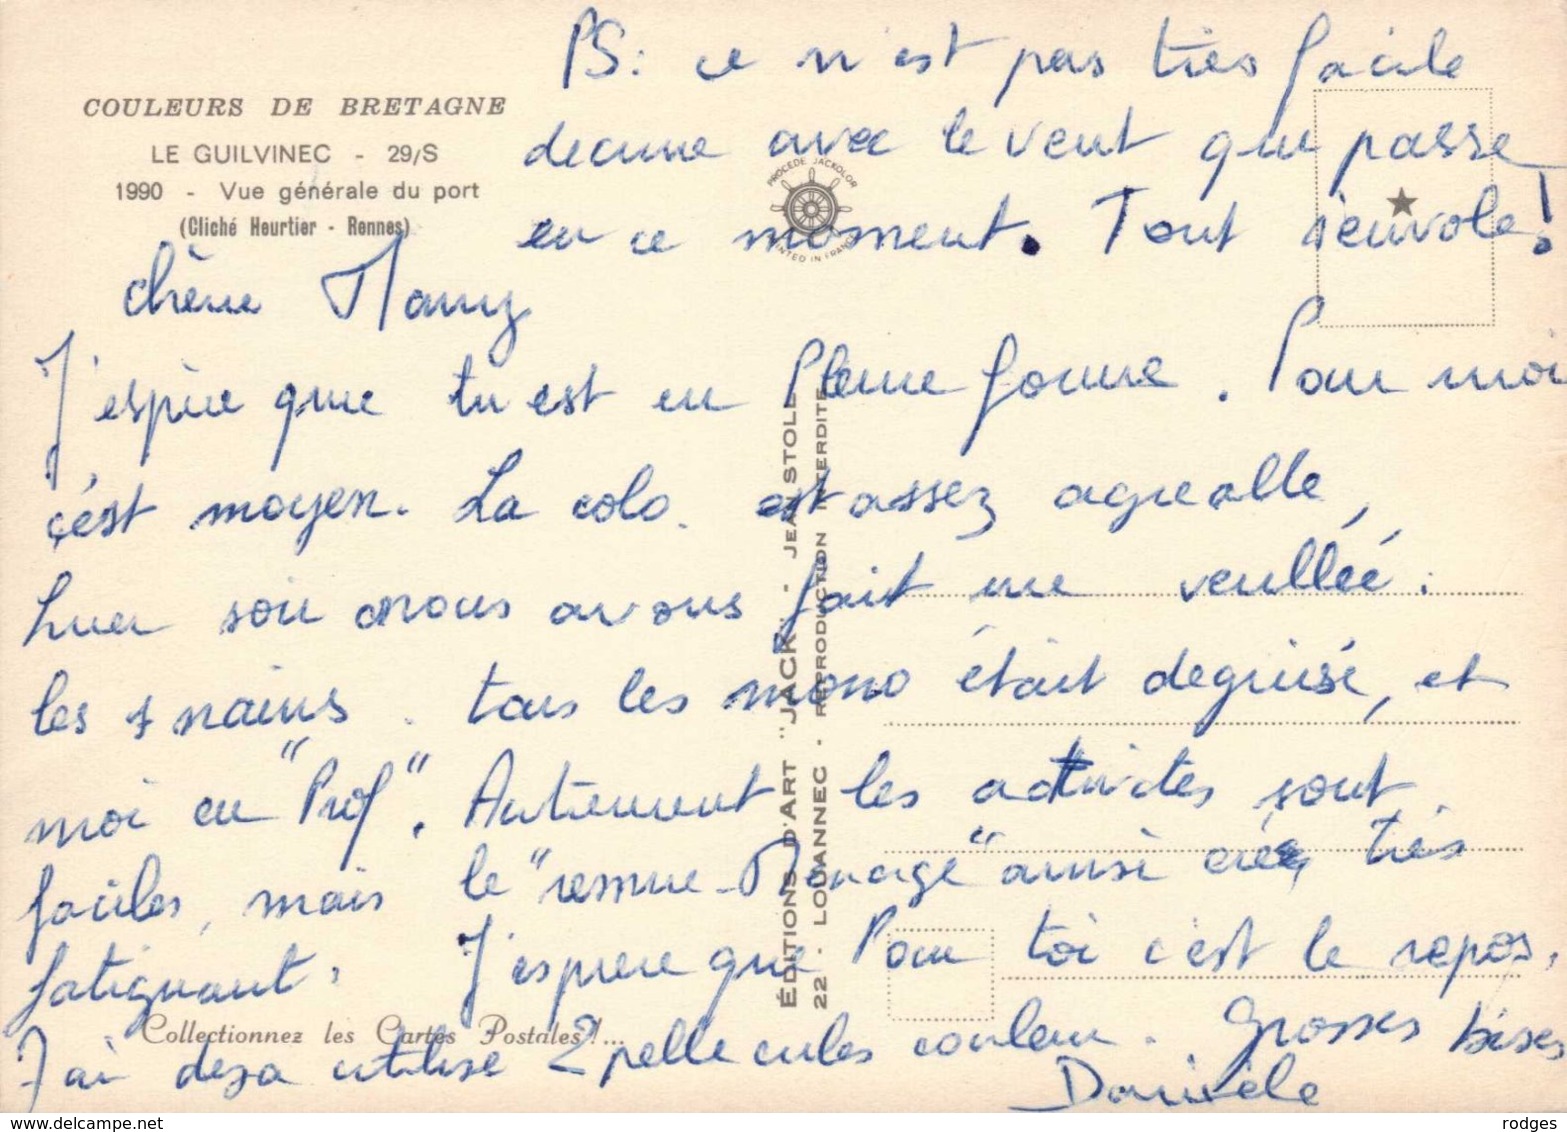 COULEURS DE BRETAGNE
LE GUILVINEC - 29/S
1990 - Vue générale du port
(Cliché Heurtier - Rennes)
PS: ce n'est pas très facile
d'ecrire avec le vent qui passe
en ce moment. Tout s'envole!
PROCÉDÉ JACKOLOR
PRINTED IN FRANCE
chère Mamy
J'espère que tu est en Pleine forme. Pour moi
c'est moyen. La colo. est assez agreable,
hier soir nous avons fait une veilleé:
les 7 nains. tous les mono était deguisé, et
moi en "Prof". Autrement les activites sont
faciles, mais le "remue-Menage" ainsi créé très
fatiguant. J'espere que Pour toi c'est le repos.
J'ai deja utilise 2 pellecules couleur. Grosses bises
Danièle
ÉDITIONS D'ART "JACK" - JEAN STOLL
22 - LOUANNEC - REPRODUCTION INTERDITE
Collectionnez les Cartes Postales!...
www.delcampe.net
rodges